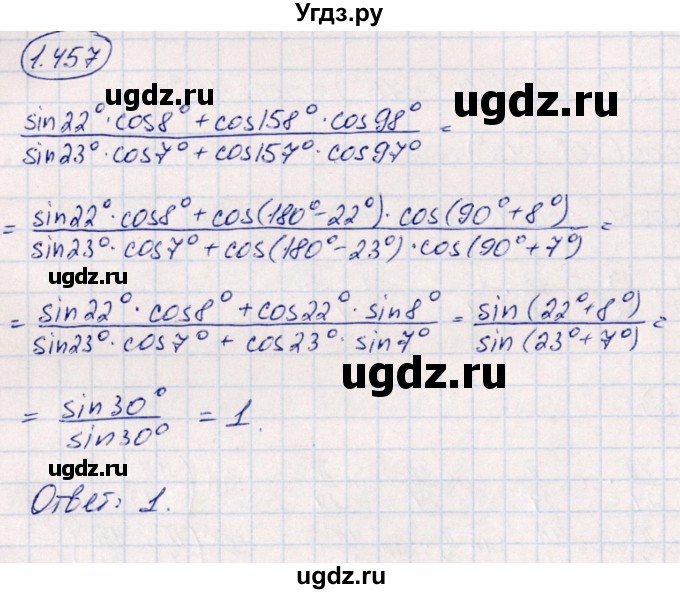 Угдз.ру
1.457
ugdz.ru
ugdz.ru
(sin22°·cos8° + cos158°·cos98°)/(sin23°·cos7° + cos157°·cos97°) =
= (sin22°·cos8° + cos(180°-22°)·cos(90°+8°))/(sin23°·cos7° + cos(180°-23°)·cos(90°+7°)) =
ugdz.ru
= (sin22°·cos8° + cos22°·sin8°)/(sin23°·cos7° + cos23°·sin7°) = sin(22°+8°)/sin(23°+7°) =
ugdz.ru
= sin30°/sin30° = 1.
ugdz.ru
Ответ: 1.
ugdz.ru
ugdz.ru